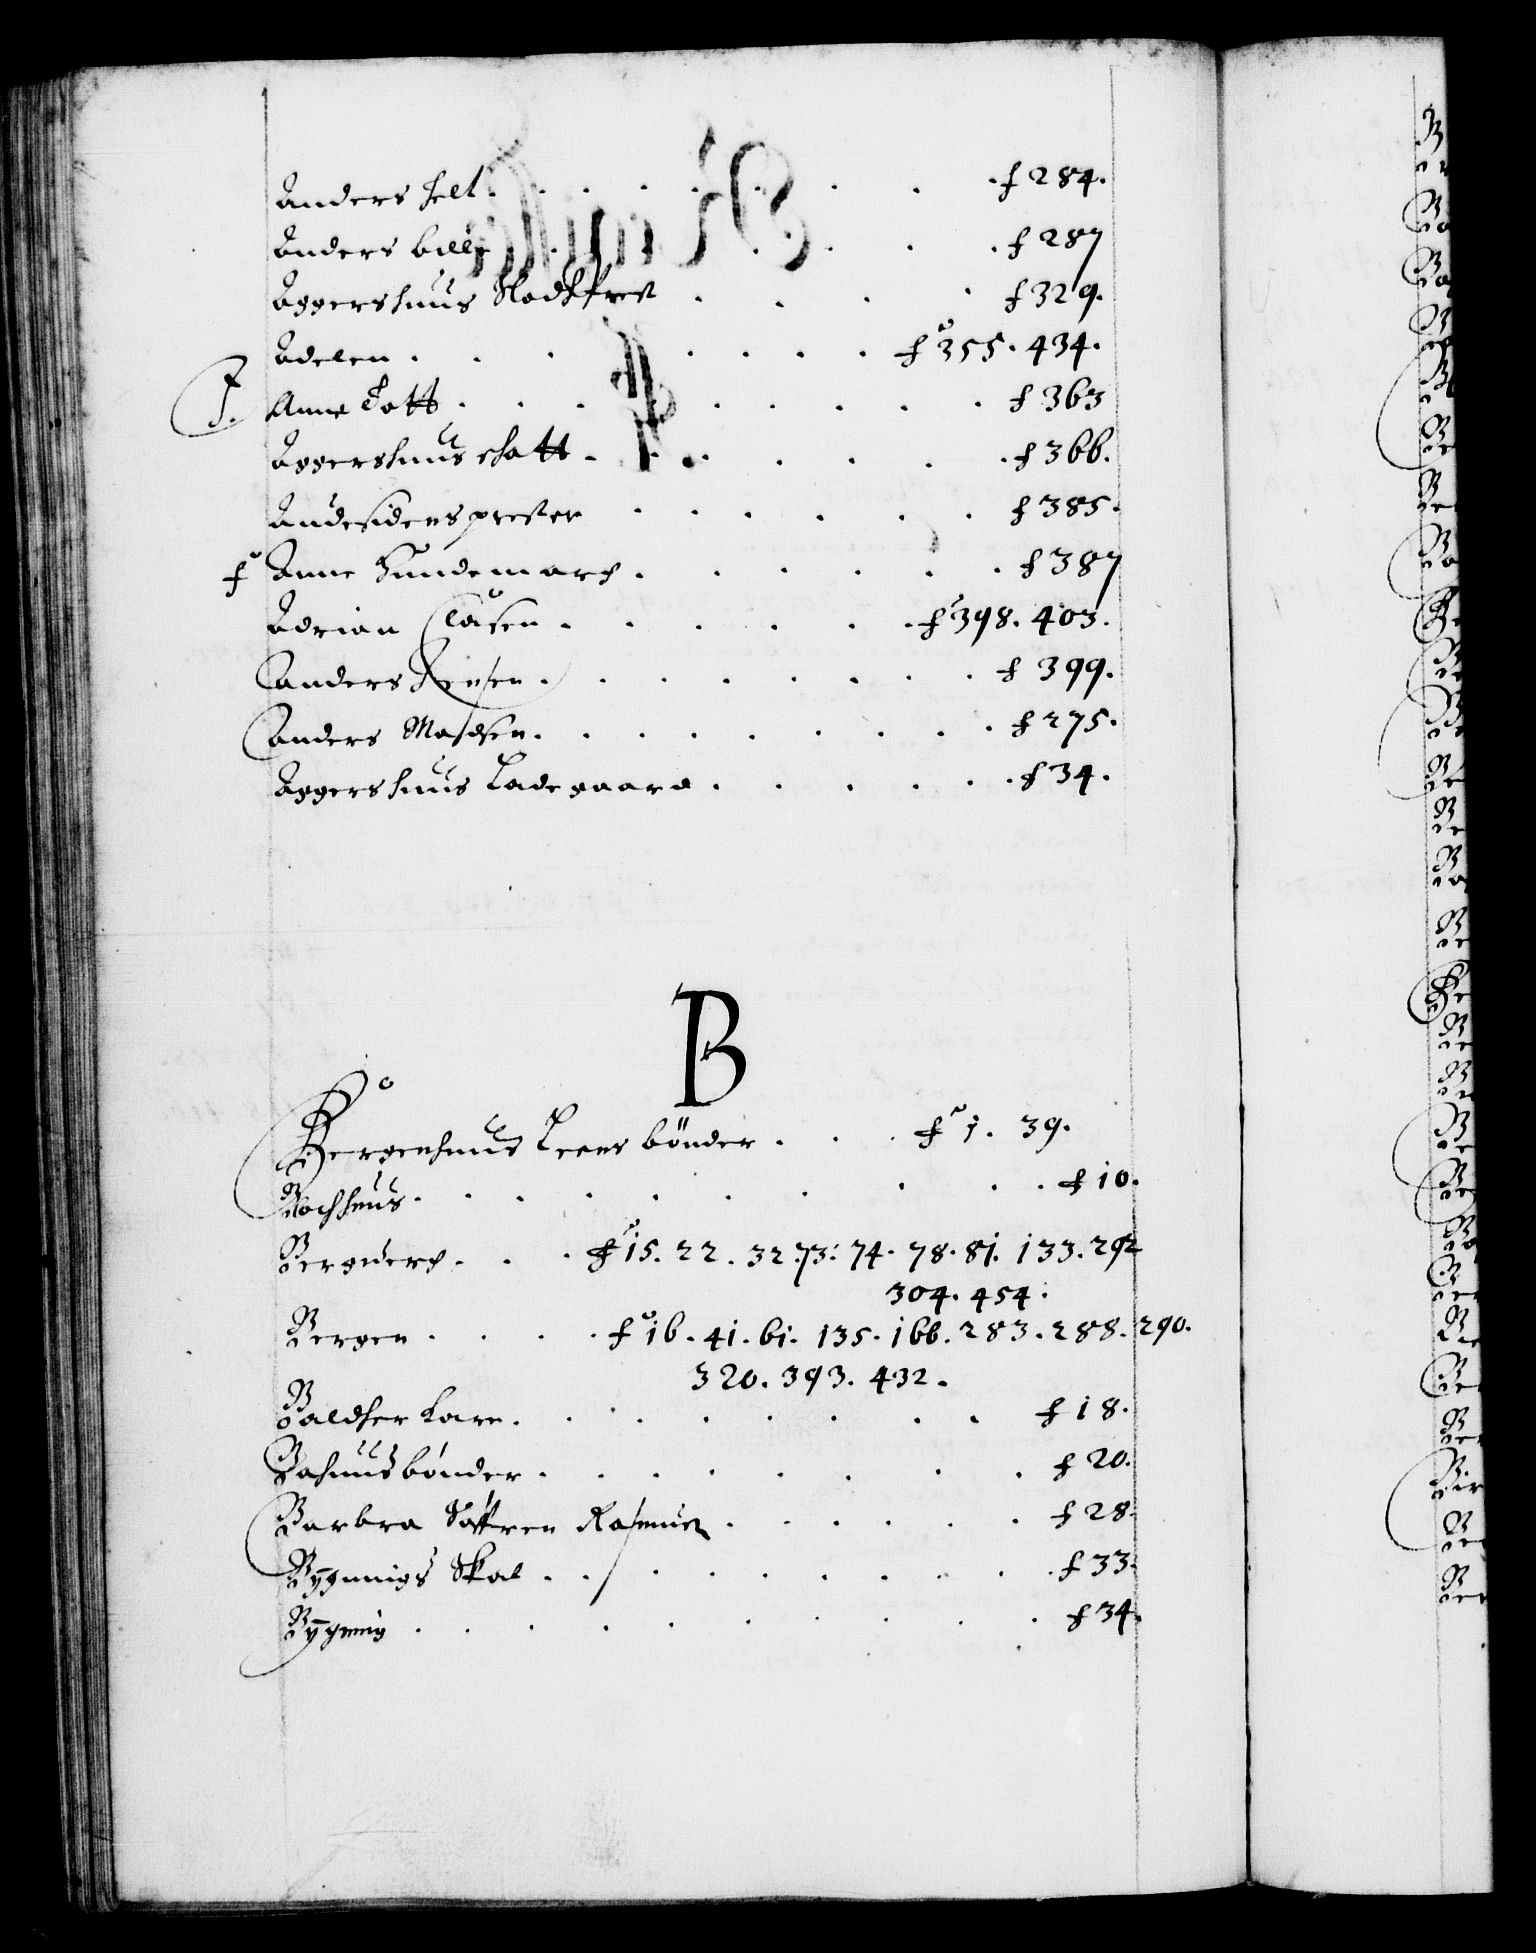 Anders felt . . . . . . . . f 284.
Anders bille . . . . . . . f 287
Aggershuus Slodtz prest . . . . f 329.
Adelen . . . . . . . . f 355. 434.
F. Anne Tott . . . . . . . . f 363
Aggershuus skatt . . . . . . f 366.
Andesidens prester . . . . . . f 385.
f Anne Hundemarck . . . . . . f 387
Adrian Clasen . . . . . . f 398. 403.
Anders Jensen . . . . . . . f 399.
Anders Madsen . . . . . . . f 275.
Aggershuus Ladegaard . . . . . f 34.
B
Bergenhuus Leens bönder . . . f 1. 39.
Bochhuus . . . . . . . . . f 10.
Bergverch . . . f 15. 22. 32. 73. 74. 78. 81. 133. 292
304. 454.
Bergen . . . . f 16. 41. 61. 135. 166. 283. 288. 290.
320. 393. 432.
Baldser Lare . . . . . . . . f 18.
Bahuus bønder . . . . . . . f 20.
Barbra Søffren Rasmus . . . . . f 28.
Bÿgnings Skat . . . . . . . . f 33.
Bÿgning . . . . . . . . . f 34.